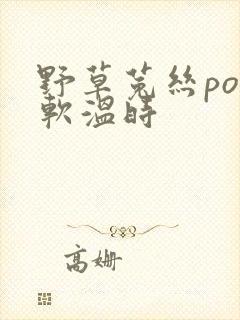 野草菟絲po
軟溫時
高姍